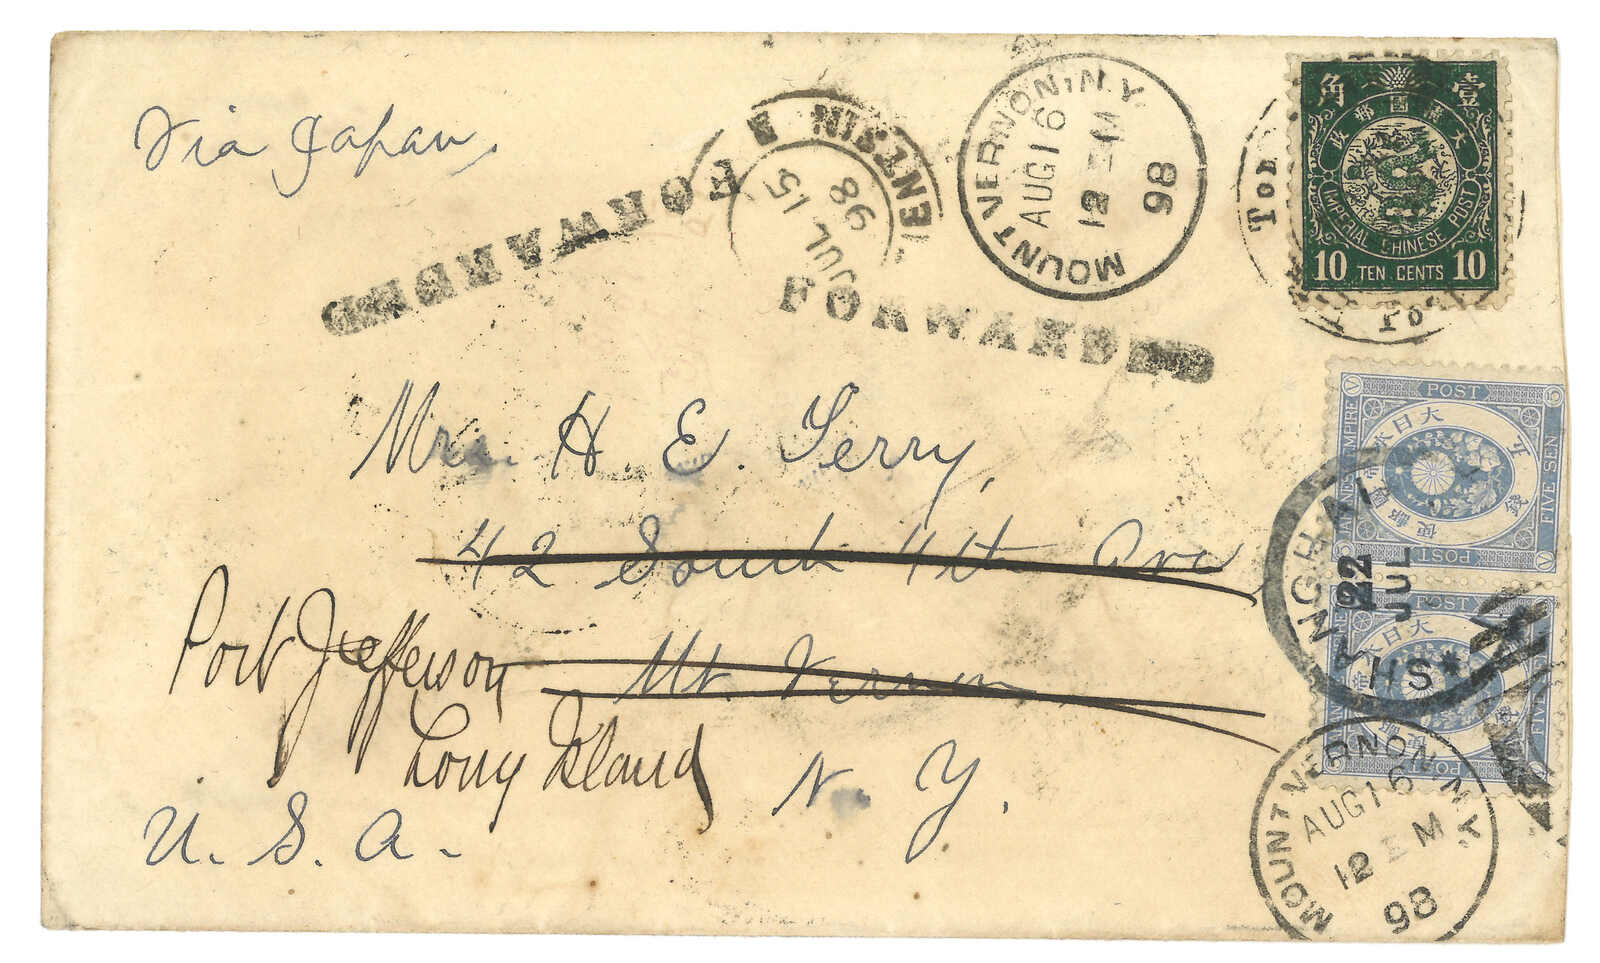 Via Japan,
FORWARDED
TIENTSIN
JUL 15
98
MOUNT VERNON, N.Y.
AUG 16
12 M
98
壹角
大清國郵政
IMPERIAL CHINESE POST
10 TEN CENTS 10
FORWARDED
Mrs. H. E. Terry,
42 South 4th Ave
Mt. Vernon
Port Jefferson
Long Island
N. Y.
U. S. A.
POST
大日本帝國郵便
五錢
FIVE SEN
POST
SHANGHAI
22
JUL
POST
大日本帝
FIVE SEN
POST
MOUNT VERNON, N.Y.
AUG 16
12 M
98